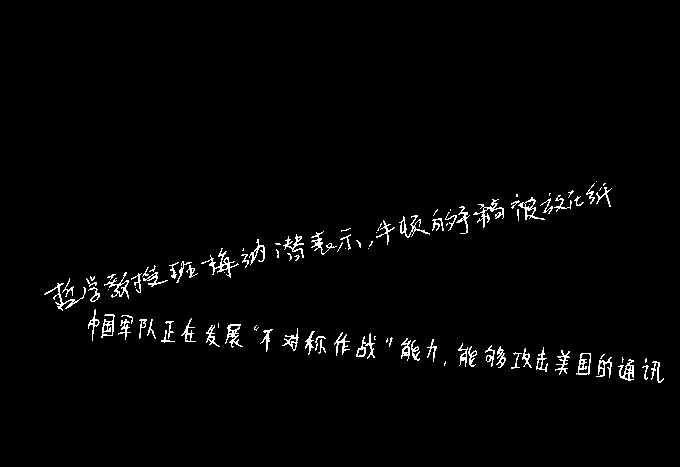 哲学教授班梅纳潜表示,牛顿的手稿被放在纸
中国军队正在发展“不对称作战”能力,能够攻击美国的通讯